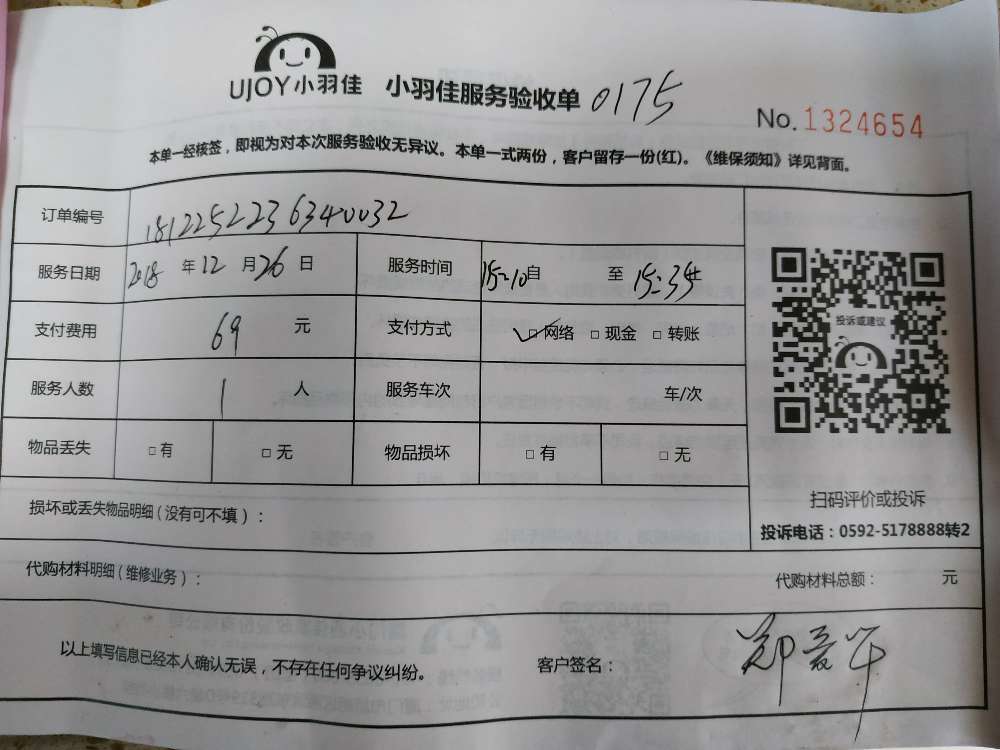 UJOY小羽佳 小羽佳服务验收单 0175
No. 1324654
本单一经核签，即视为对本次服务验收无异议。本单一式两份，客户留存一份(红)。《维保须知》详见背面。
订单编号 1812252236340032
服务日期 2018 年 12 月 26 日 服务时间 15:10 自 至 15:35
投诉或建议
支付费用 69 元 支付方式 ✓□网络 □现金 □转账
服务人数 1 人 服务车次 车/次
物品丢失 □有 □无 物品损坏 □有 □无
扫码评价或投诉
损坏或丢失物品明细（没有可不填）：
投诉电话：0592-5178888转2
代购材料明细（维修业务）： 代购材料总额： 元
以上填写信息已经本人确认无误，不存在任何争议纠纷。 客户签名：郑爱华